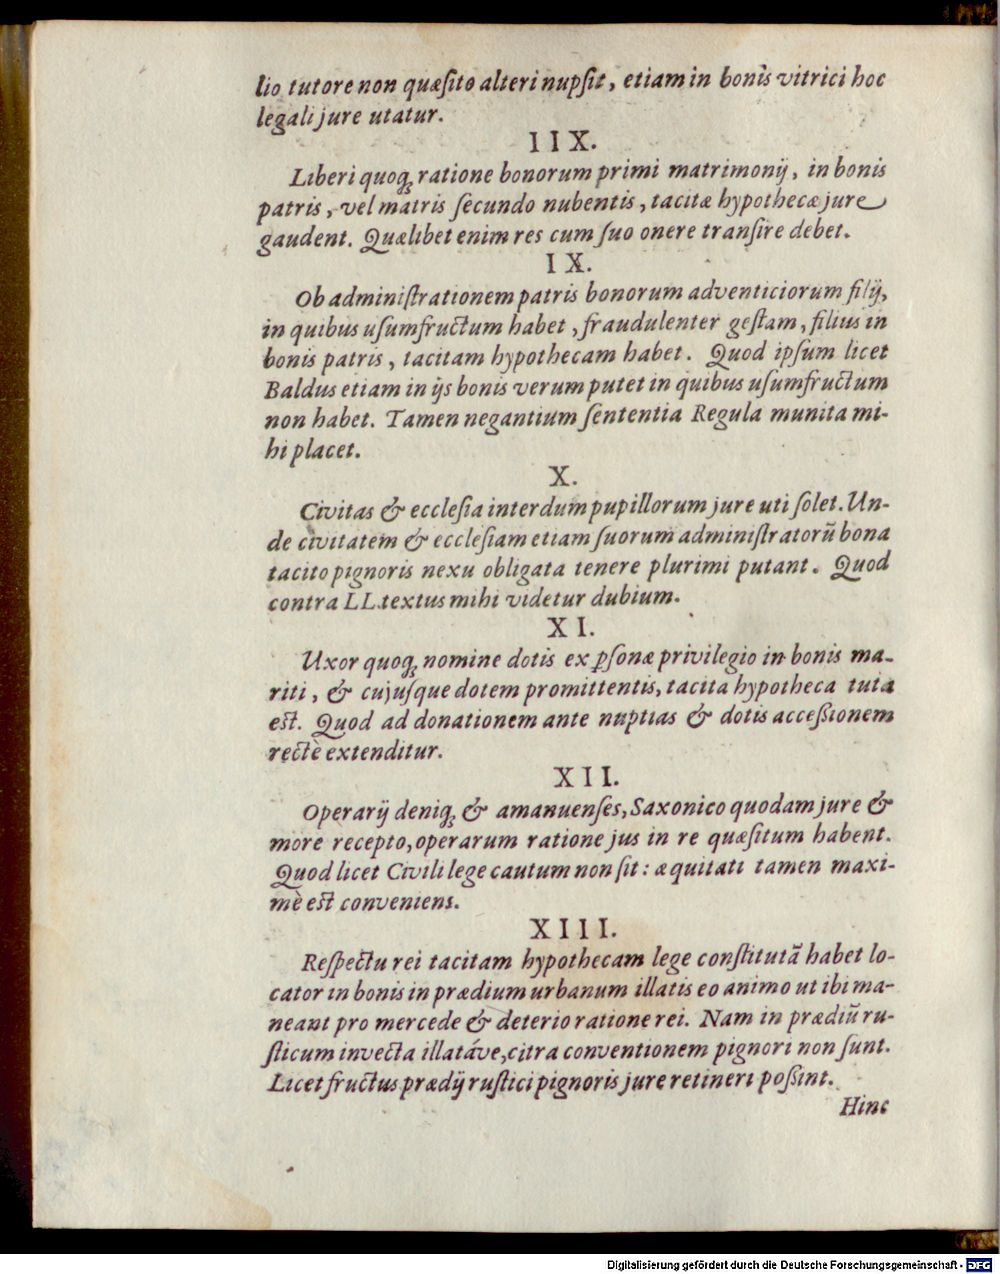 lio tutore non quæſito alteri nupſit, etiam in bonis vitrici hoc
legali jure utatur.
IIX.
Liberi quoq́ꝫ ratione bonorum primi matrimonij, in bonis
patris, vel matris ſecundo nubentis, tacitæ hypothecæ jure
gaudent. Quælibet enim res cum ſuo onere tranſire debet.
IX.
Ob adminiſtrationem patris bonorum adventiciorum filij,
in quibus uſumfructum habet, fraudulenter geſtam, filius in
bonis patris, tacitam hypothecam habet. Quod ipſum licet
Baldus etiam in ijs bonis verum putet in quibus uſumfructum
non habet. Tamen negantium ſententia Regula munita mi-
hi placet.
X.
Civitas & eccleſia interdum pupillorum jure uti ſolet. Un-
de civitatem & eccleſiam etiam ſuorum adminiſtratorũ bona
tacito pignoris nexu obligata tenere plurimi putant. Quod
contra LL. textus mihi videtur dubium.
XI.
Uxor quoq́ꝫ nomine dotis ex ꝑſonæ privilegio in bonis ma-
riti, & cujuſque dotem promittentis, tacita hypotheca tuta
est. Quod ad donationem ante nuptias & dotis acceßionem
rectè extenditur.
XII.
Operarij deniq́ꝫ & amanuenſes, Saxonico quodam jure &
more recepto, operarum ratione jus in re quæſitum habent.
Quod licet Civili lege cautum non ſit: æquitati tamen maxi-
mè est conveniens.
XIII.
Reſpectu rei tacitam hypothecam lege conſtitutã habet lo-
cator in bonis in prædium urbanum illatis eo animo ut ibi ma-
neant pro mercede & deterioratione rei. Nam in prædiũ ru-
ſticum invecta illatáve, citra conventionem pignori non ſunt.
Licet fructus prædij ruſtici pignoris jure retineri poßint.
Hinc
Digitalisierung gefördert durch die Deutsche Forschungsgemeinschaft - DFG